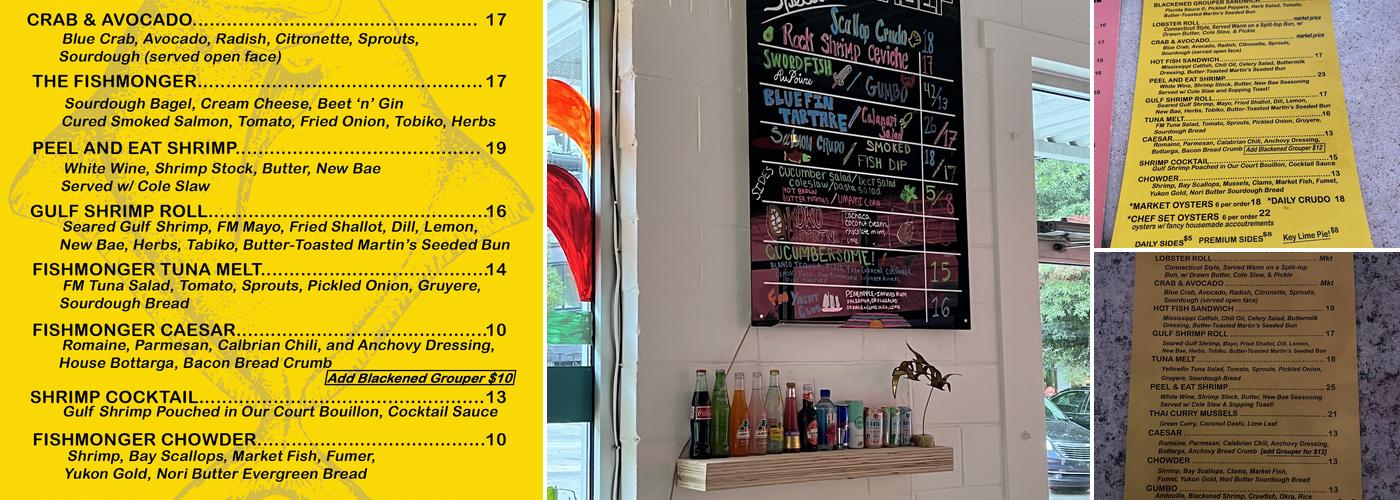 CRAB & AVOCADO.......... 17
Blue Crab, Avocado, Radish, Citronette, Sprouts,
Sourdough (served open face)
THE FISHMONGER.......... 17
Sourdough Bagel, Cream Cheese, Beet ‘n’ Gin
Cured Smoked Salmon, Tomato, Fried Onion, Tobiko, Herbs
PEEL AND EAT SHRIMP.......... 19
White Wine, Shrimp Stock, Butter, New Bae
Served w/ Cole Slaw
GULF SHRIMP ROLL.......... 16
Seared Gulf Shrimp, FM Mayo, Fried Shallot, Dill, Lemon,
New Bae, Herbs, Tabiko, Butter-Toasted Martin's Seeded Bun
FISHMONGER TUNA MELT.......... 14
FM Tuna Salad, Tomato, Sprouts, Pickled Onion, Gruyere,
Sourdough Bread
FISHMONGER CAESAR.......... 10
Romaine, Parmesan, Calbrian Chili, and Anchovy Dressing,
House Bottarga, Bacon Bread Crumb
Add Blackened Grouper $10
SHRIMP COCKTAIL.......... 13
Gulf Shrimp Pouched in Our Court Bouillon, Cocktail Sauce
FISHMONGER CHOWDER.......... 10
Shrimp, Bay Scallops, Market Fish, Fumer,
Yukon Gold, Nori Butter Evergreen Bread
Scallop Crudo 18
Rock Shrimp Ceviche 17
SWORDFISH
Au Poivre / GUMBO 42/13
BLUEFIN
TARTARE / Calamari Salad 26/17
SALMON CRUDO / SMOKED
FISH DIP 18/17
SIDES
cucumber salad/beet salad
coleslaw/pasta salad 5/8
HOT BROWN
BUTTER POTATOES / UMAMI CORN
CUCUMBERSOME! 15
YACHT 16
BLACKENED GROUPER SANDWICH
Florida Sauce G, Pickled Peppers, Herb Salad, Tomato,
Butter-Toasted Martin's Seeded Bun
LOBSTER ROLL.......... market price
Connecticut Style, Served Warm on a Split-top Bun, w/
Drawn Butter, Cole Slaw, & Pickle
CRAB & AVOCADO.......... market price
Blue Crab, Avocado, Radish, Citronette, Sprouts,
Sourdough (served open face)
HOT FISH SANDWICH.......... 17
Mississippi Catfish, Chili Oil, Celery Salad, Buttermilk
Dressing, Butter-Toasted Martin's Seeded Bun
PEEL AND EAT SHRIMP.......... 23
White Wine, Shrimp Stock, Butter, New Bae Seasoning
Served w/ Cole Slaw and Sopping Toast!
GULF SHRIMP ROLL.......... 17
Seared Gulf Shrimp, Mayo, Fried Shallot, Dill, Lemon,
New Bae, Herbs, Tobiko, Butter-Toasted Martin's Seeded Bun
TUNA MELT.......... 16
FM Tuna Salad, Tomato, Sprouts, Pickled Onion, Gruyere,
Sourdough Bread
CAESAR.......... 13
Romaine, Parmesan, Calabrian Chili, Anchovy Dressing,
Bottarga, Bacon Bread Crumb Add Blackened Grouper $12
SHRIMP COCKTAIL.......... 15
Gulf Shrimp Poached in Our Court Bouillon, Cocktail Sauce
CHOWDER.......... 13
Shrimp, Bay Scallops, Mussels, Clams, Market Fish, Fumet,
Yukon Gold, Nori Butter Sourdough Bread
*MARKET OYSTERS 6 per order 18 *DAILY CRUDO 18
*CHEF SET OYSTERS 6 per order 22
oysters w/ fancy housemade accoutrements
DAILY SIDES $5 PREMIUM SIDES $8 Key Lime Pie! $8
LOBSTER ROLL .......... Mkt
Connecticut Style, Served Warm on a Split-top
Bun, w/ Drawn Butter, Cole Slaw, & Pickle
CRAB & AVOCADO .......... Mkt
Blue Crab, Avocado, Radish, Citronette, Sprouts,
Sourdough (served open face)
HOT FISH SANDWICH .......... 19
Mississippi Catfish, Chili Oil, Celery Salad, Buttermilk
Dressing, Butter-Toasted Martin's Seeded Bun
GULF SHRIMP ROLL .......... 17
Seared Gulf Shrimp, Mayo, Fried Shallot, Dill, Lemon,
New Bae, Herbs, Tobiko, Butter-Toasted Martin's Seeded Bun
TUNA MELT .......... 18
Yellowfin Tuna Salad, Tomato, Sprouts, Pickled Onion,
Gruyere, Sourdough Bread
PEEL & EAT SHRIMP .......... 25
White Wine, Shrimp Stock, Butter, New Bae Seasoning
Served w/ Cole Slaw & Sopping Toast!
THAI CURRY MUSSELS .......... 21
Green Curry, Coconut Dashi, Lime Leaf
CAESAR .......... 13
Romaine, Parmesan, Calabrian Chili, Anchovy Dressing,
Bottarga, Anchovy Bread Crumb [add Grouper for $12]
CHOWDER .......... 13
Shrimp, Bay Scallops, Clams, Market Fish,
Fumet, Yukon Gold, Nori Butter
GUMBO .......... 13
Andouille, Blackened Shrimp, Crawfish, Okra, Rice